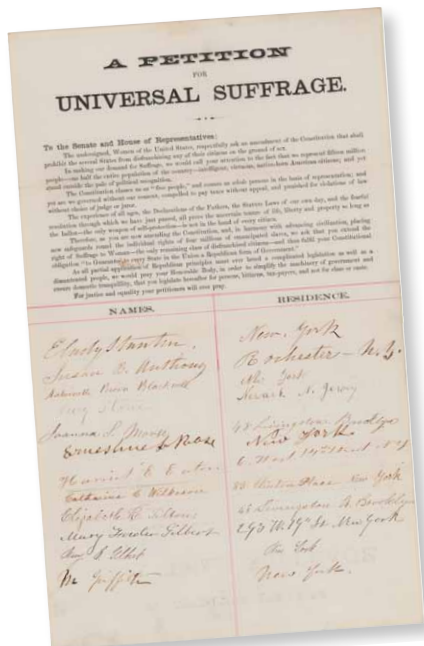 A PETITION
FOR
UNIVERSAL SUFFRAGE.
To the Senate and House of Representatives:
The undersigned, Women of the United States, respectfully ask an amendment of the Constitution that shall
prohibit the several States from disfranchising any of their citizens on the ground of sex.
In making our demand for Suffrage, we would call your attention to the fact that we represent fifteen million
people—one half the entire population of the country—intelligent, virtuous, native-born American citizens; and yet
stand outside the pale of political recognition.
The Constitution classes us as "free people," and counts us whole persons in the basis of representation; and
yet are we governed without our consent, compelled to pay taxes without appeal, and punished for violations of law
without choice of judge or juror.
The experience of all ages, the Declarations of the Fathers, the Statute Laws of our own day, and the fearful
revolution through which we have just passed, all prove the uncertain tenure of life, liberty and property so long as
the ballot—the only weapon of self-protection—is not in the hand of every citizen.
Therefore, as you are now amending the Constitution, and, in harmony with advancing civilization, placing
new safeguards round the individual rights of four millions of emancipated slaves, we ask that you extend the
right of Suffrage to Woman—the only remaining class of disfranchised citizens—and thus fulfil your Constitutional
obligation "to Guarantee to every State in the Union a Republican form of Government."
As all partial application of Republican principles must ever breed a complicated legislation as well as a
discontented people, we would pray your Honorable Body, in order to simplify the machinery of government and
ensure domestic tranquillity, that you legislate hereafter for persons, citizens, tax-payers, and not for class or caste.
For justice and equality your petitioners will ever pray.
NAMES. RESIDENCE.
E Cady Stanton, New York
Susan B. Anthony Rochester - N.Y.
Antoinette Brown Blackwell New York
Lucy Stone Newark N. Jersey
Joanna S. Morse 48 Livingston Brooklyn
Ernestine L Rose New York
Harriet E Eaton 6 West 14th Street N.Y
Catharine C Wilkeson 83 Clinton Place New York
Elizabeth R Tilton 48 Livingston St. Brooklyn
Mary Fowler Gilbert 293 W. 19th St New York
Gilbert New York
M Griffith New York.